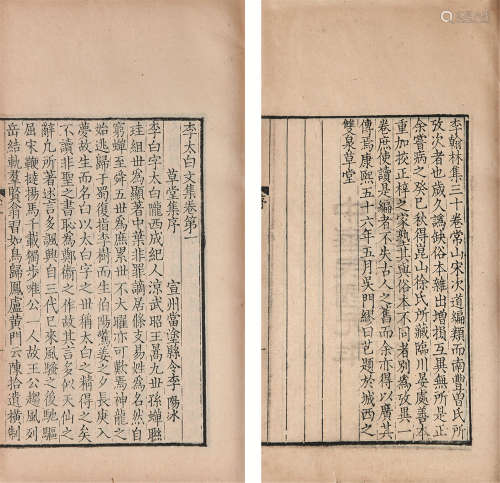 李翰林集三十卷常山宋次道編類而南豐曾氏所
攷次者也歲久譌缺俗本雜出增損互異無所是正
余嘗病之癸巳秋得崑山徐氏所藏臨川晏處善本
重加挍正梓之家塾其與俗本不同者別為攷異一
卷庶使讀是編者不失古人之舊而余亦得以廣其
傳焉康熙五十六年五月吳門繆曰芑題於城西之
雙泉草堂
李太白文集卷第一
草堂集序
宣州當塗縣令李陽冰
李白字太白隴西成紀人涼武昭王暠九世孫蟬聯
珪組世為顯著中葉非罪謫居條支易姓為名然自
窮蟬至舜五世為庶累世不大曜亦可歎焉神龍之
始逃歸于蜀復指李樹而生伯陽驚姜之夕長庚入
夢故生而名白以太白字之世稱太白之精得之矣
不讀非聖之書恥為鄭衛之作故其言多似天仙之
辭凡所著述言多諷興自三代已來風騷之後馳驅
屈宋鞭撻揚馬千載獨步唯公一人故王公趨風列
岳結軌羣賢翕習如鳥歸鳳盧黃門云陳拾遺橫制